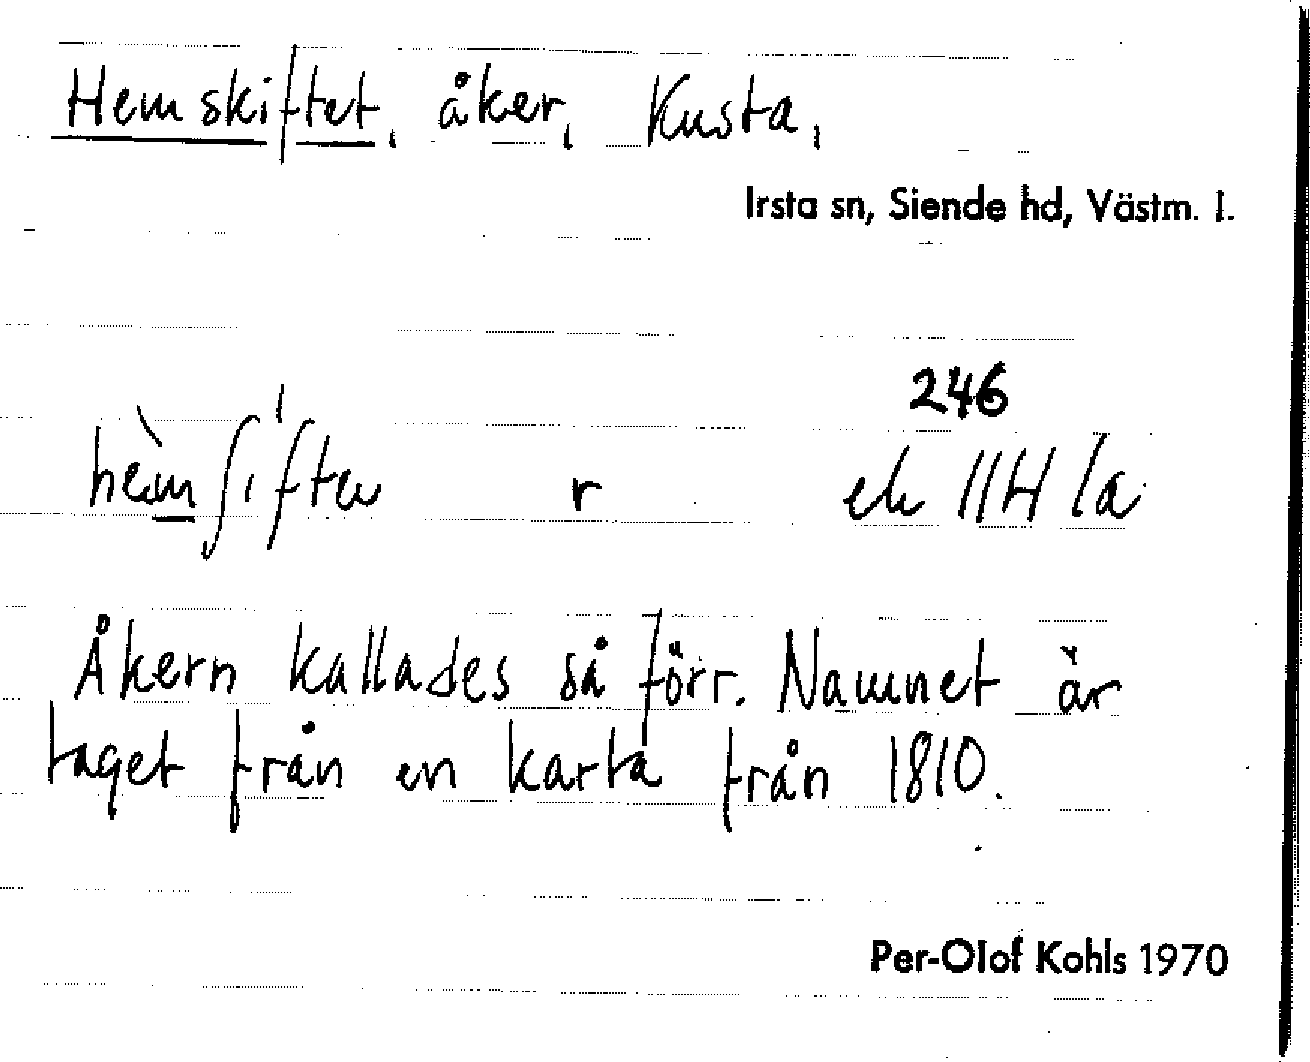 Hemskiftet, åker, Kusta,
Irsta sn, Siende hd, Västm. l.
246
r ek 11H 1a
Åkern kallades så förr. Namnet är
taget från en karta från 1810.
Per-Olof Kohls 1970